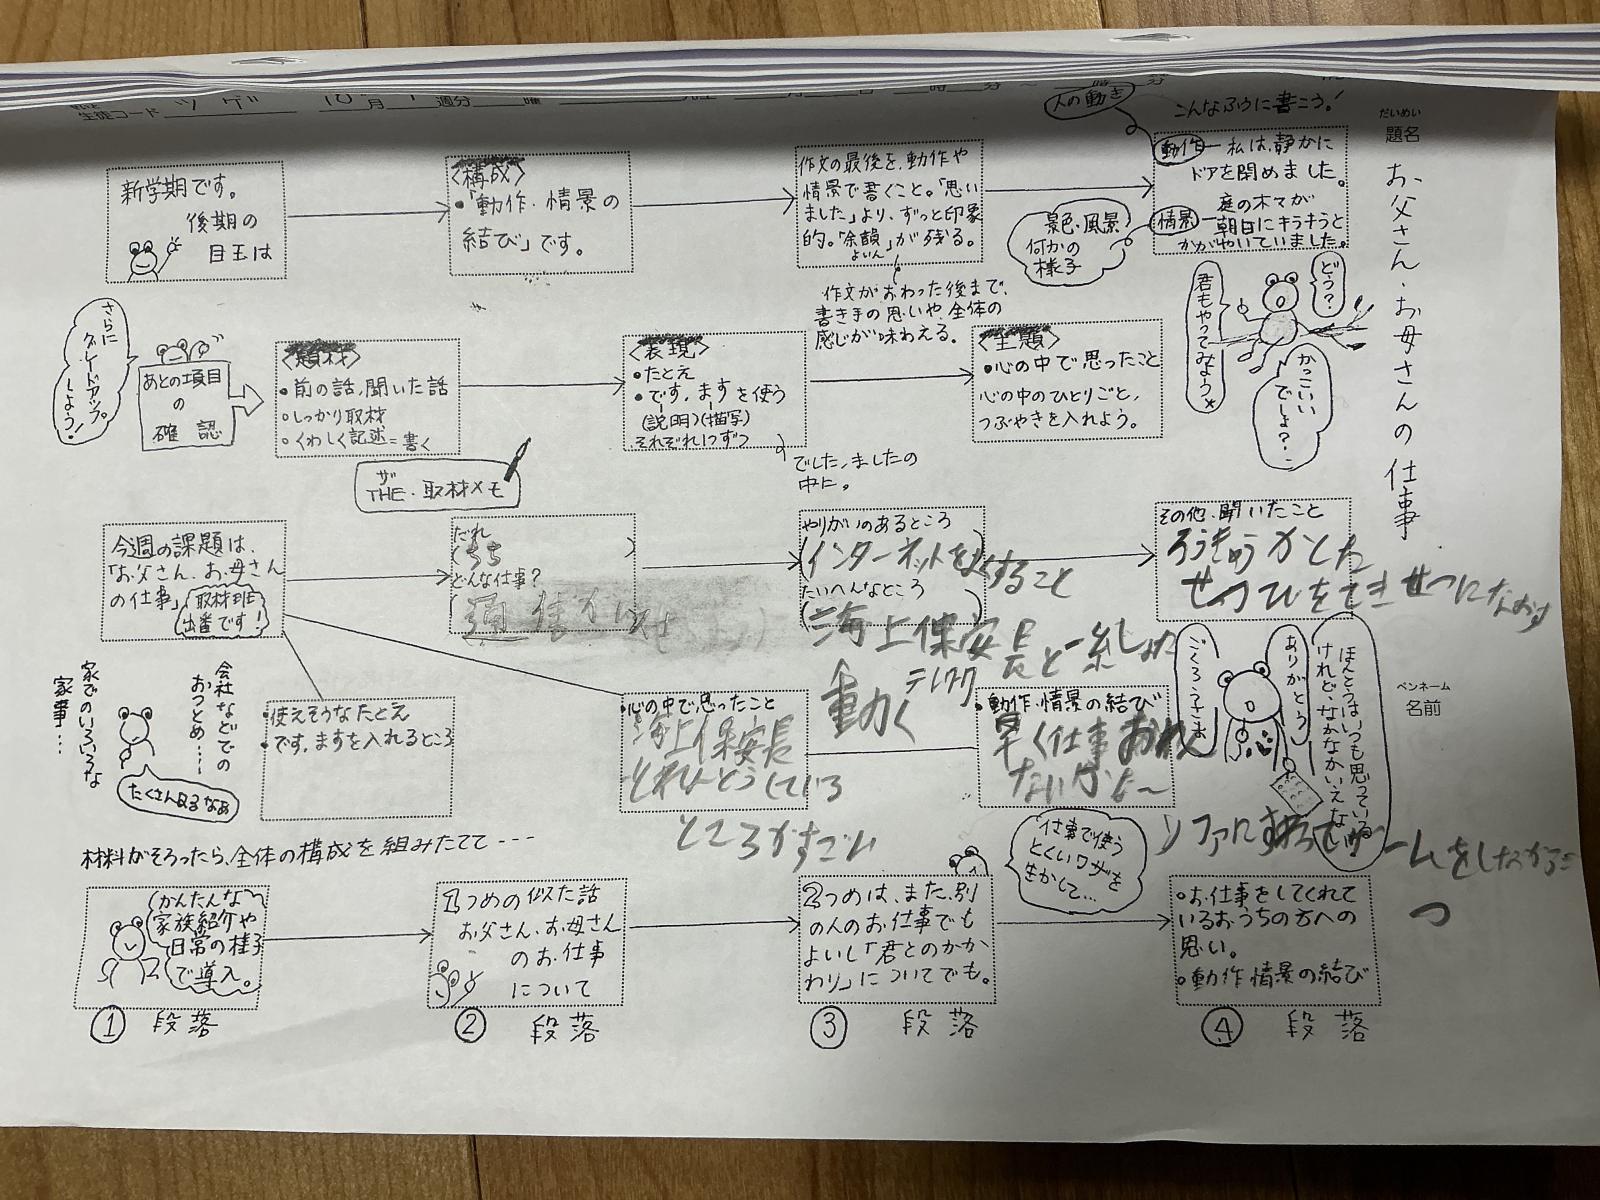 生徒コード ツゲ 10月 週分 曜
だいめい
題名
お父さん・お母さんの仕事
ペンネーム
名前
新学期です。
後期の
目玉は
〈構成〉
・「動作・情景の
結び」です。
作文の最後を、動作や
情景で書くこと。「思い
ました」より、ずっと印象
的。「余韻」が残る。
よいん
作文がおわった後まで、
書き手の思いや、全体の
感じが味わえる。
人の動き
こんなふうに書こう!
動作―私は、静かに
ドアを閉めました。
情景―庭の木々が
朝日にキラキラと
かがやいていました。
景色・風景
何かの
様子
どう?
かっこいい
でしょ?
君もやってみよう
さらに
グレードアップ
しよう!
あとの項目
の
確認
〈題材〉
・前の話、聞いた話
・しっかり取材
・くわしく記述=書く
〈表現〉
・たとえ
・です、ますを使う
(説明)(描写)
それぞれ1つずつ
でした、ましたの
中に。
〈主題〉
・心の中で思ったこと
心の中のひとりごと、
つぶやきを入れよう。
ザ
THE・取材メモ
今週の課題は、
「お父さん、お母さん
の仕事」
取材班
出番です!
だれ
(ちち)
どんな仕事?
(通信
やりがいのあるところ
(インターネットをよくすること
たいへんなところ
(海上保安長と一緒に
動く
その他・聞いたこと
ろうきゅうかした
せつびをてきせつになおす
会社などでの
おつとめ…
家でのいろいろな
家事…
たくさんあるなあ
・使えそうなたとえ
・です、ますを入れるところ
・心の中で思ったこと
海上保安長
ところがすごい
・動作・情景の結び
早く仕事おわん
ないかな〜
ソファにすわってゲームをしながら
ごくろうさま
ありがとう
ほんとうは、いつも思っている
けれど、なかなかいえない
材料がそろったら、全体の構成を組みたてて---
仕事で使う
とくいワザを
生かして…
かんたんな
家族紹介や
日常の様子
で導入。
① 段落
1つめの似た話
お父さん、お母さん
のお仕事
について
② 段落
2つめは、また、別
の人のお仕事でも
よいし「君とのかか
わり」についてでも。
③ 段落
・お仕事をしてくれて
いるおうちの方への
思い。
・動作・情景の結び
④ 段落